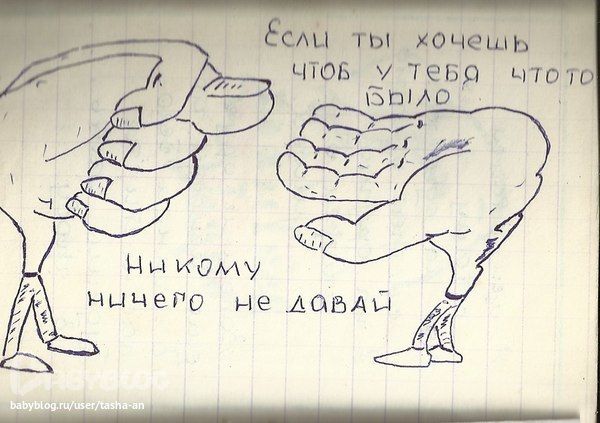 Если ты хочешь
чтоб у тебя что то
было
никому
ничего не давай
BABYBLOG
babyblog.ru/user/tasha-an